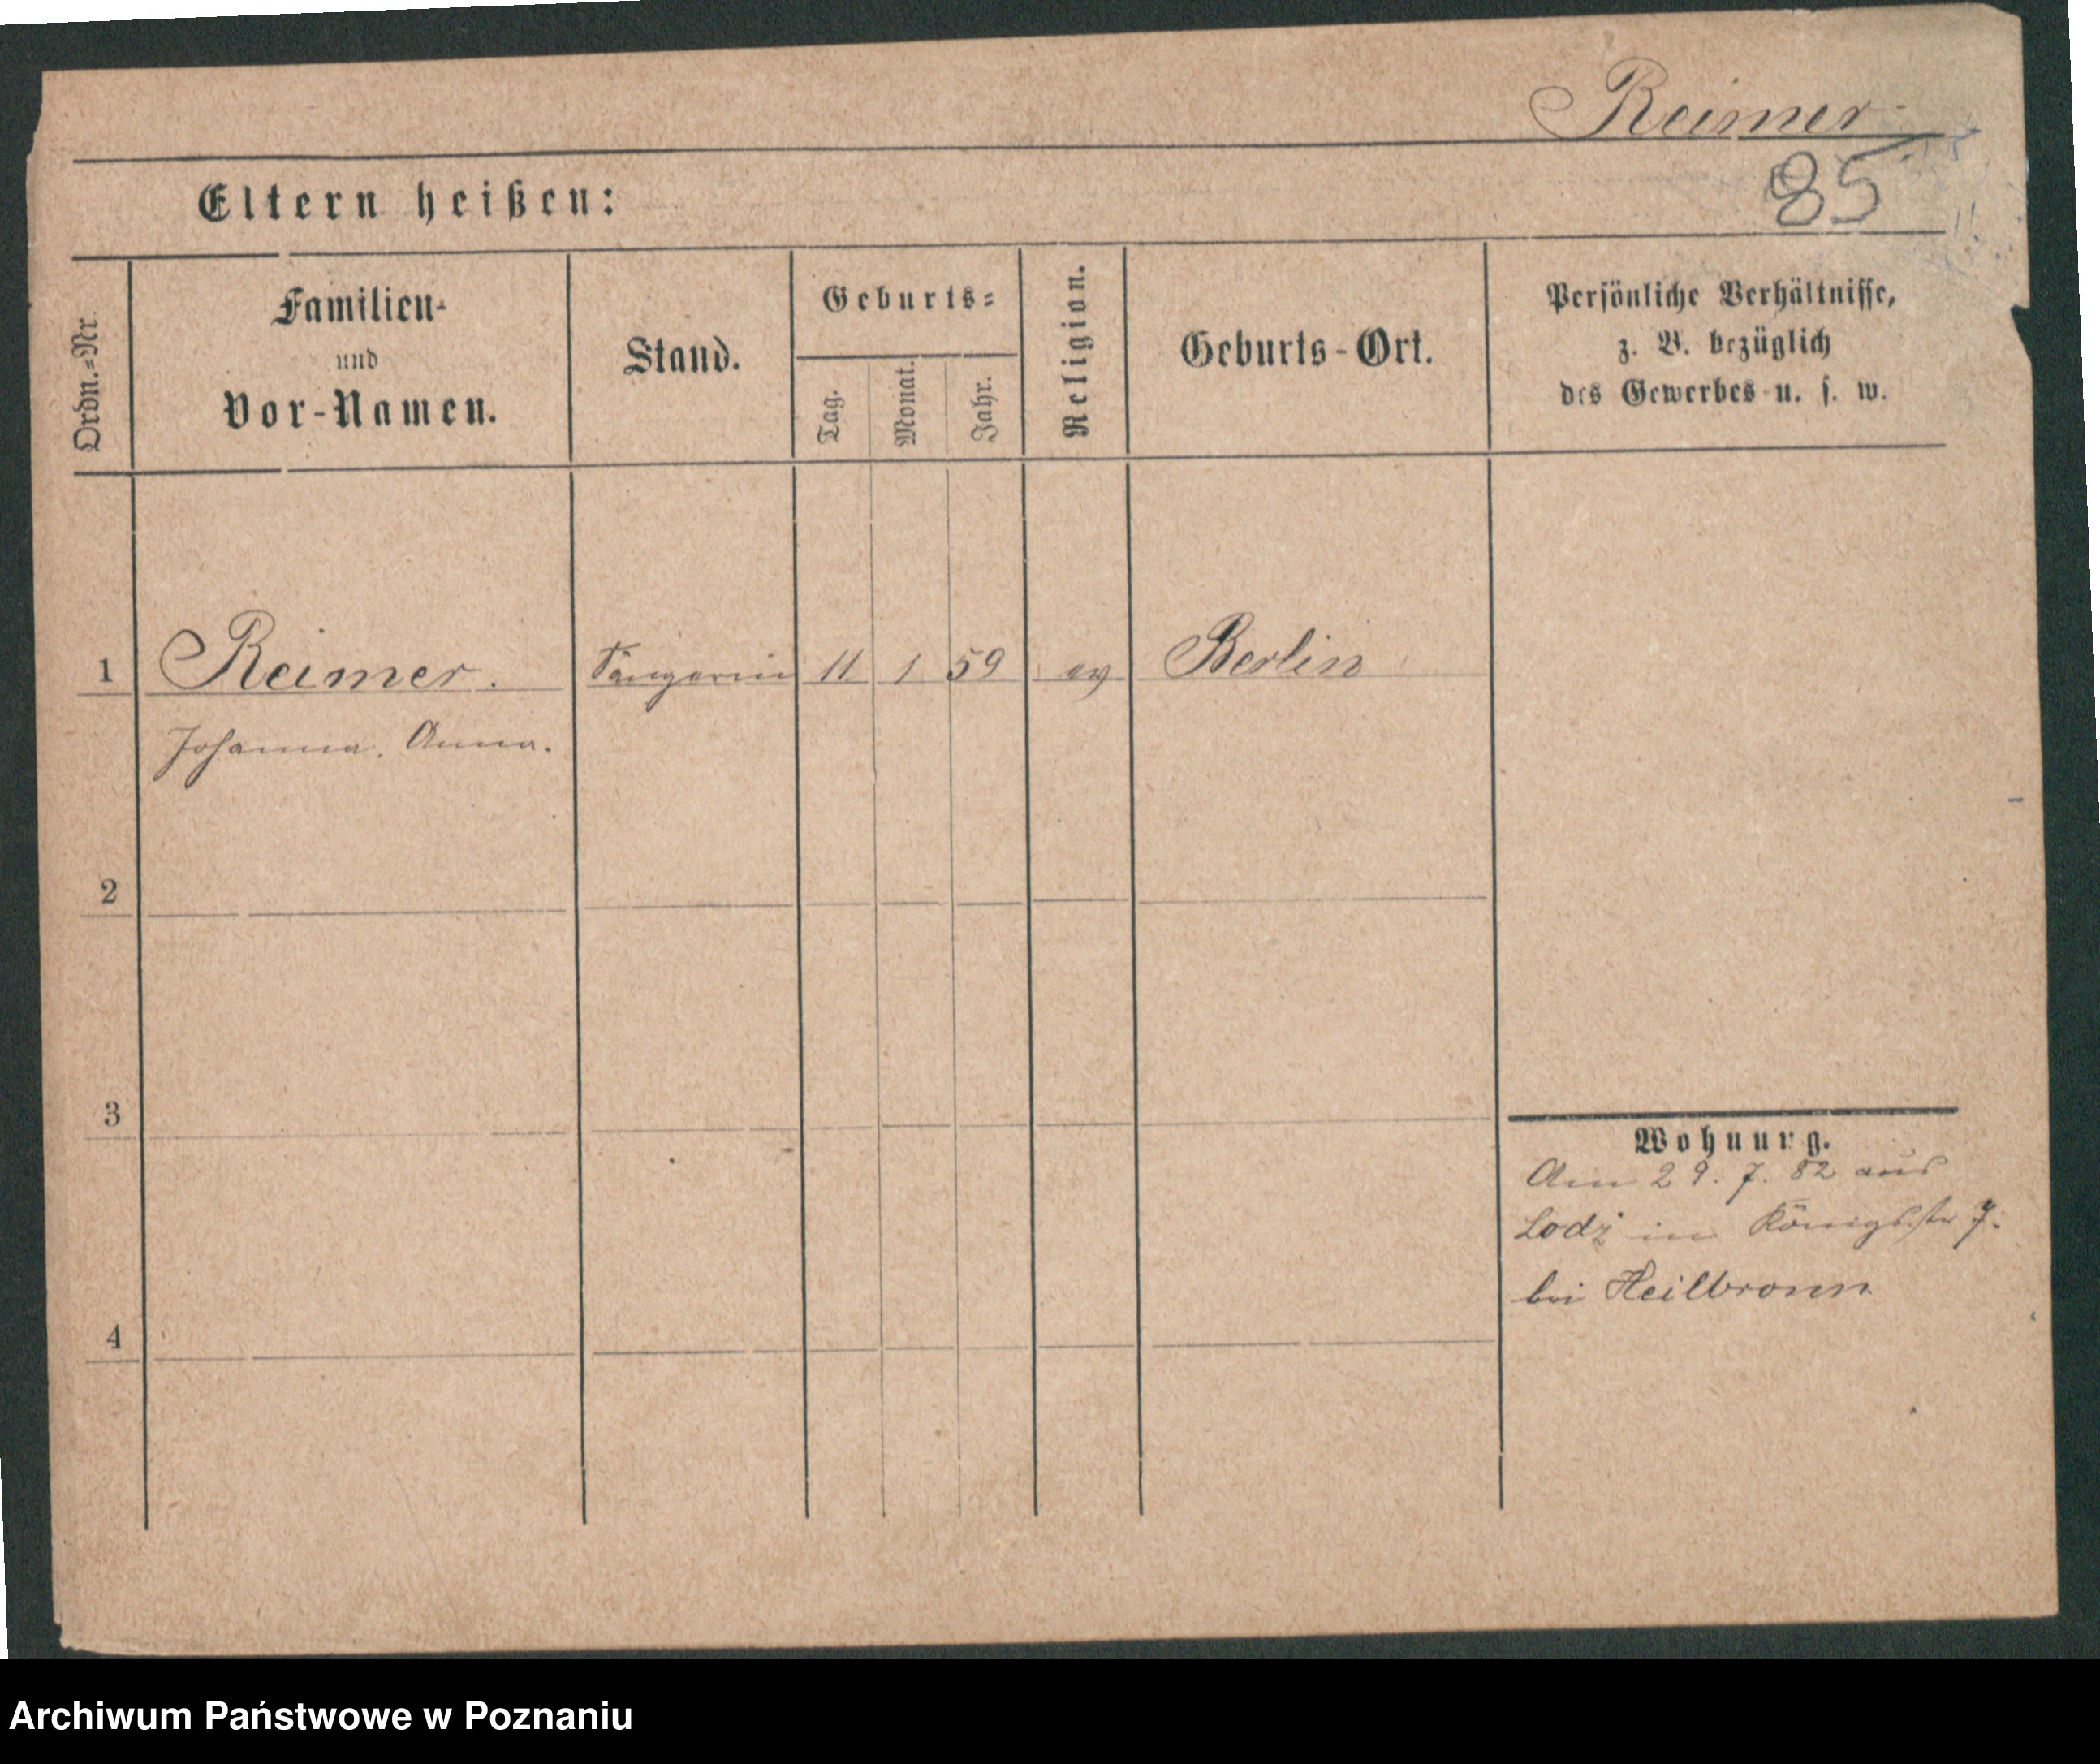 Reimer
85
Eltern heißen:
Ordn.=Nr.
Familien-
und
Vor-Namen.
Stand.
Geburts=
Tag.
Monat.
Jahr.
Religion.
Geburts-Ort.
Persönliche Verhältnisse,
z. B. bezüglich
des Gewerbes u. s. w.
1 Reimer. Sängerin 11 1 59 ev Berlin
Johanna. Anna.
2
3
4
Wohnung.
Am 29. 7. 82 aus
Lodz in Königsstr 7.
bei Heilbronn
Archiwum Państwowe w Poznaniu